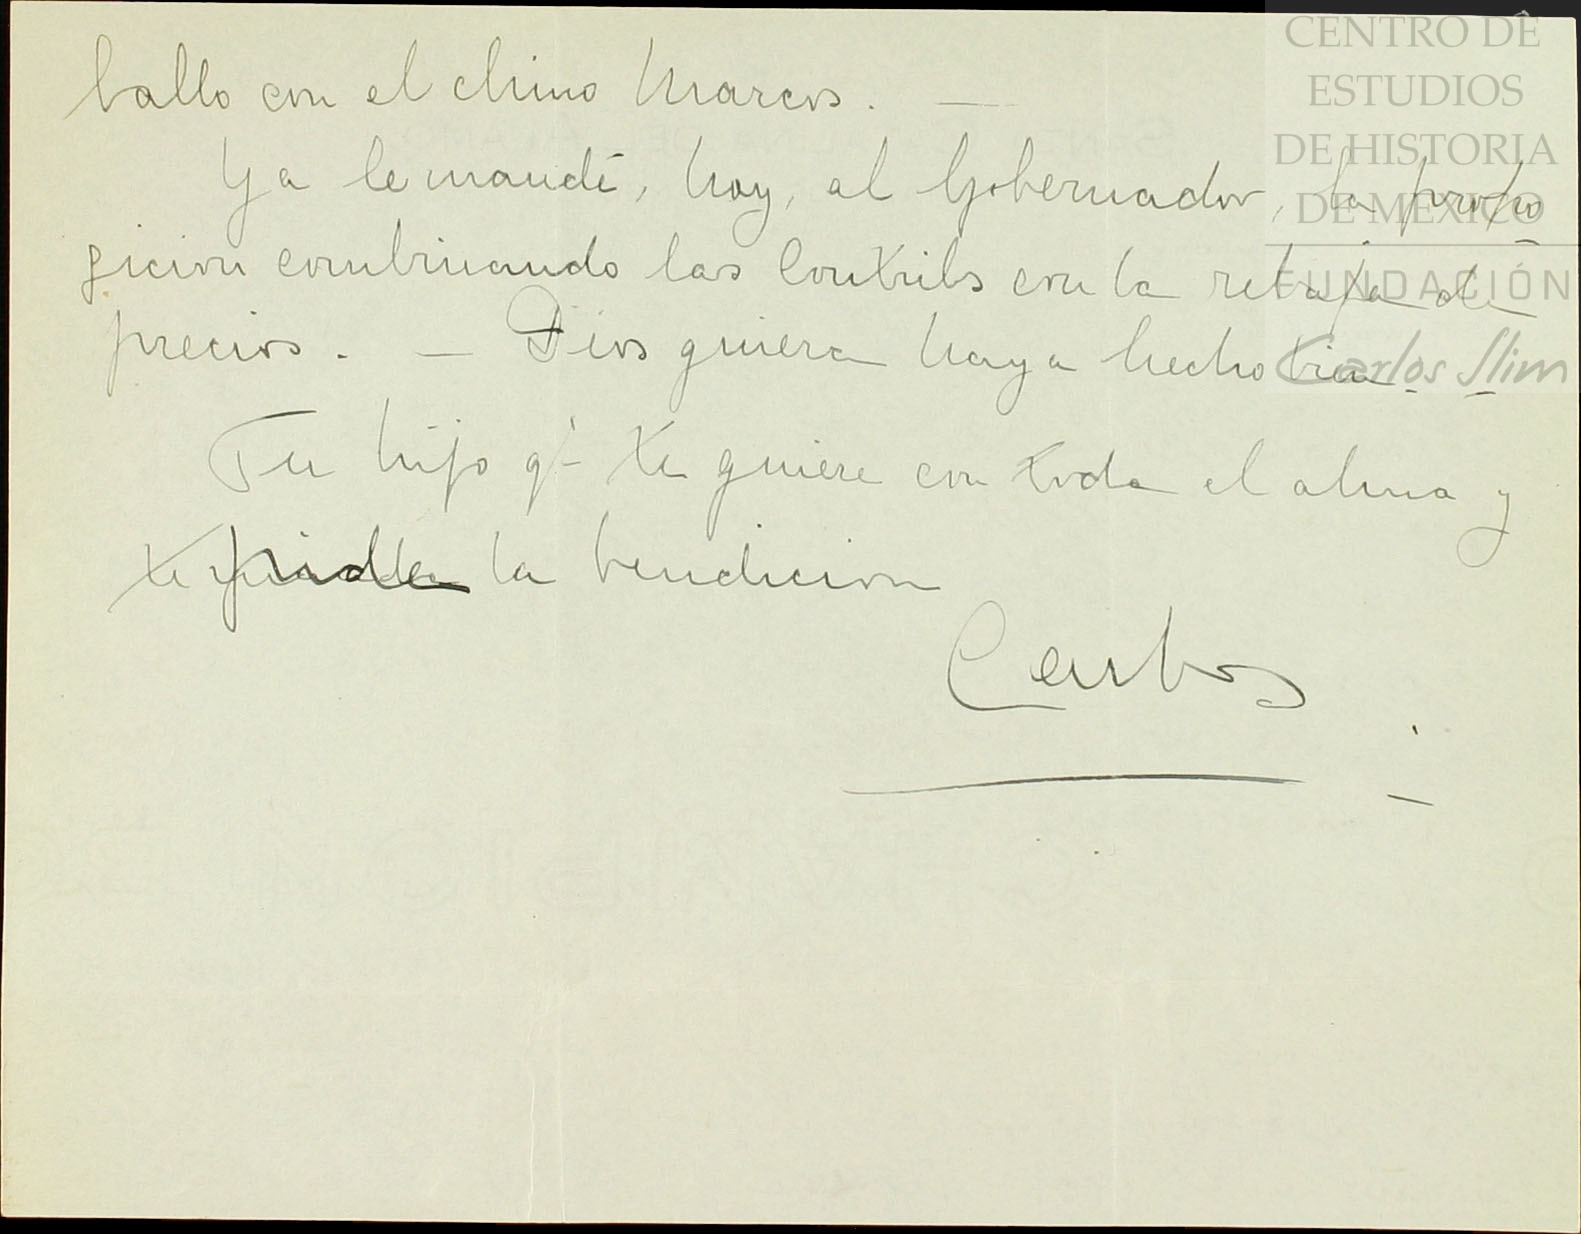 ballo con el chino Marcos. —
Ya le mandé, hoy, al Gobernador, la propo
sicion combinando las Contribs con la rebaja de
precios. — Dios quiera haya hecho bien. —
Tu hijo q' te quiere con toda el alma y
te pide la bendicion
Carlos
CENTRO DE
ESTUDIOS
DE HISTORIA
DE MEXICO
FUNDACIÓN
Carlos Slim